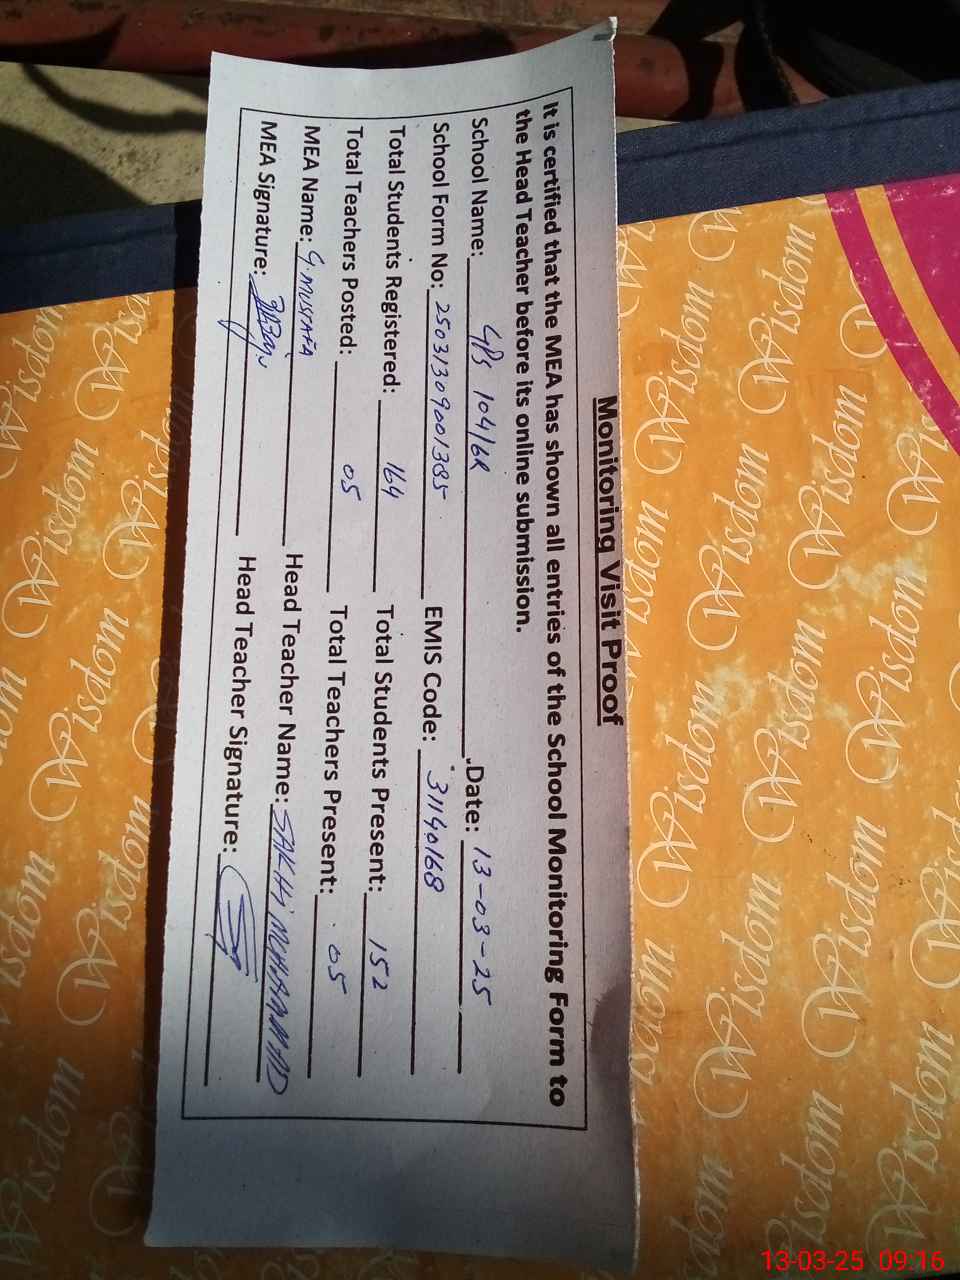 Monitoring Visit Proof
It is certified that the MEA has shown all entries of the School Monitoring Form to
the Head Teacher before its online submission.
School Name: GPS 104/6R Date: 13-03-25
School Form No: 25031309001385 EMIS Code: 31140168
Total Students Registered: 164 Total Students Present: 152
Total Teachers Posted: 05 Total Teachers Present: 05
MEA Name: G.MUSTAFA Head Teacher Name: SAKHI MUHAMMAD
MEA Signature: Head Teacher Signature:
Wisdom Wisdom Wisdom
13-03-25 09:16